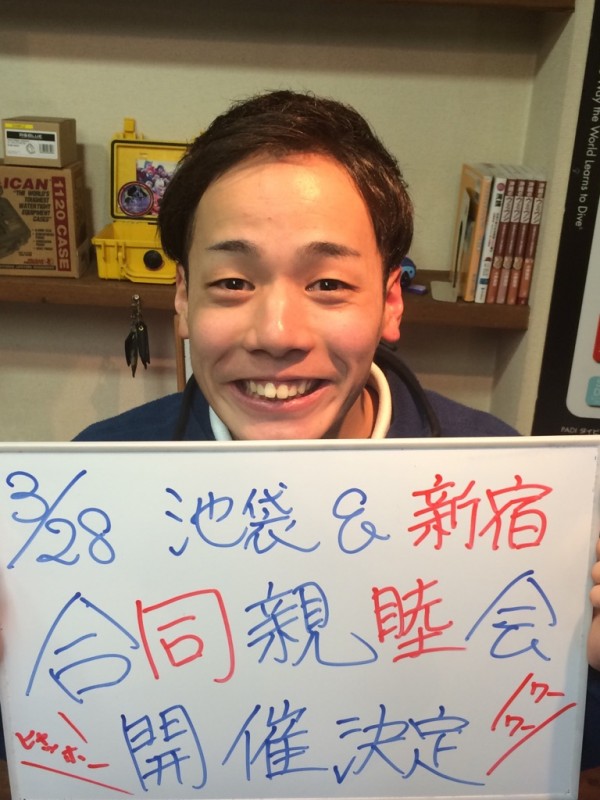 ICAN
"THE WORLD'S
TOUGHEST
WATERTIGHT
EQUIPMENT
CASES"
1120 CASE
Way the World Learns to Dive
PADI ダイビ
3/28 池袋&新宿
合同親睦会
開催決定
ワー
ワー